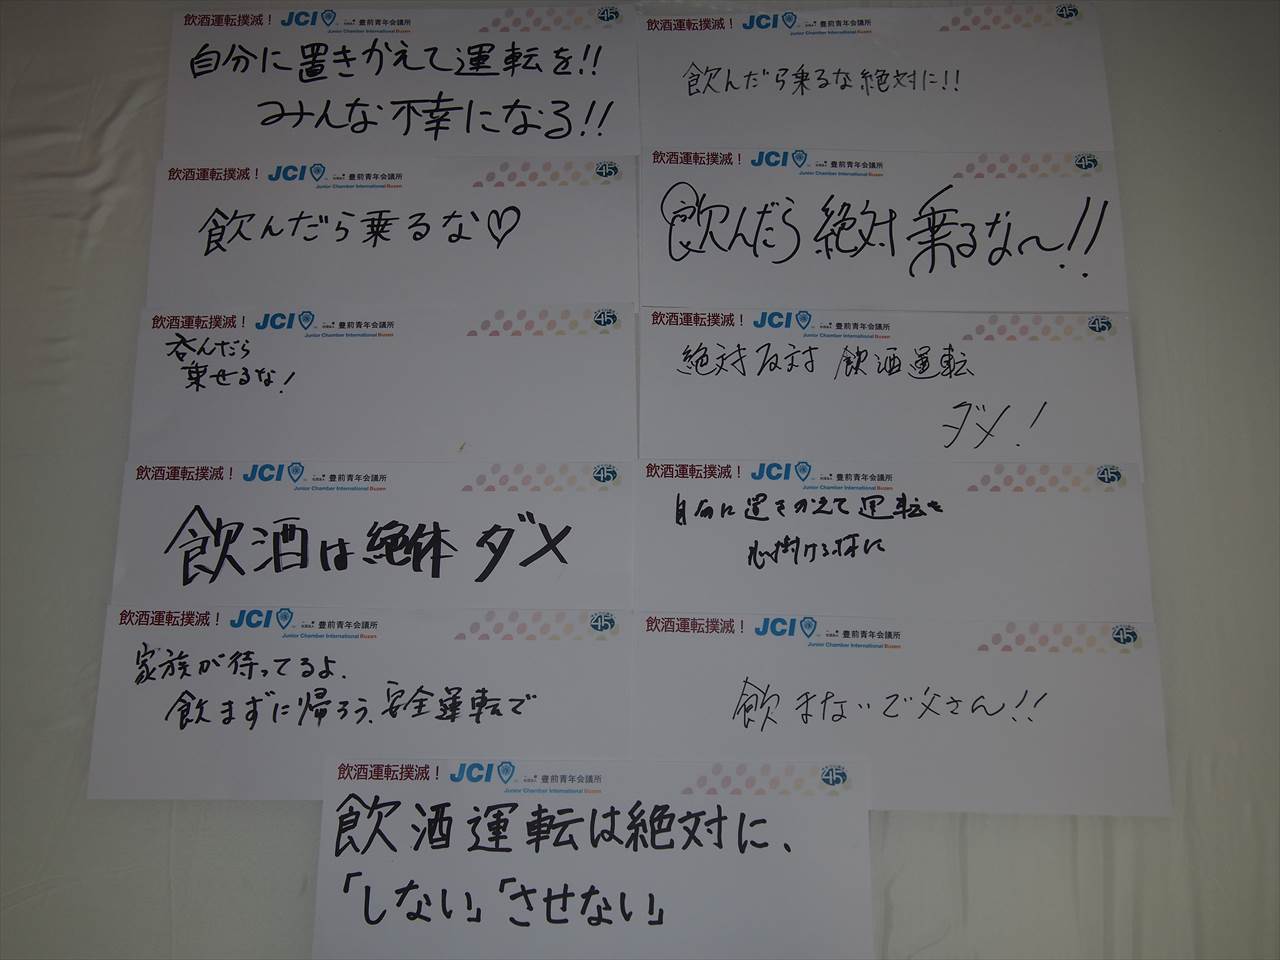 飲酒運転撲滅! JCI 一般社団法人 豊前青年会議所 45
Junior Chamber International Buzen
自分に置きかえて運転を!!
みんな不幸になる!!
飲酒運転撲滅! JCI 一般社団法人 豊前青年会議所 45
Junior Chamber International Buzen
飲んだら乗るな絶対に!!
飲酒運転撲滅! JCI 一般社団法人 豊前青年会議所 45
Junior Chamber International Buzen
飲んだら乗るな♡
飲酒運転撲滅! JCI 一般社団法人 豊前青年会議所 45
Junior Chamber International Buzen
飲んだら絶対乗るな〜!!
飲酒運転撲滅! JCI 一般社団法人 豊前青年会議所 45
Junior Chamber International Buzen
呑んだら
乗せるな!
飲酒運転撲滅! JCI 一般社団法人 豊前青年会議所 45
Junior Chamber International Buzen
絶対反対 飲酒運転
ダメ!
飲酒運転撲滅! JCI 一般社団法人 豊前青年会議所 45
Junior Chamber International Buzen
飲酒は絶体ダメ
飲酒運転撲滅! JCI 一般社団法人 豊前青年会議所 45
Junior Chamber International Buzen
自分に置きかえて運転を
心掛ける様に
飲酒運転撲滅! JCI 一般社団法人 豊前青年会議所 45
Junior Chamber International Buzen
家族が待ってるよ.
飲まずに帰ろう、安全運転で
飲酒運転撲滅! JCI 一般社団法人 豊前青年会議所 45
Junior Chamber International Buzen
飲まないで父さん!!
飲酒運転撲滅! JCI 一般社団法人 豊前青年会議所 45
Junior Chamber International Buzen
飲酒運転は絶対に、
「しない」「させない」